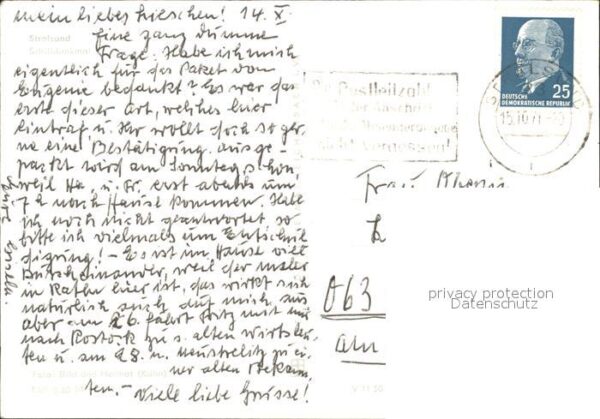 mein liebes Lieschen! 14. X.
Eine ganz dumme
Frage: Habe ich mich
eigentlich für das Paket von
Eugenie bedankt? Es war das
erste dieser Art, welches hier
eintraf u. Ihr wollt doch so ger-
ne eine Bestätigung. ausge-
packt wird am Sonntag schon,
weil He. u. Fr. erst abends um
7 h nach Hause kommen. Habe
ich noch nicht geantwortet, so
bitte ich vielmals um Entschul
digung! – Es ist im Hause viel
Durcheinander, weil der maler
in Katen hier ist, das wirkt sich
natürlich auch auf mich aus
aber am 26. fährt Fritz mit mir
nach Rostock zu s. alten Wirtsleu-
ten u. am 28. n. Neustrelitz zu ei-
ner alten Bekann
ten. – Viele liebe Grüsse!
Eure
Stralsund
Postleitzahl
nicht vergessen!
15.10.71
25
DEUTSCHE
DEMOKRATISCHE REPUBLIK
Frau
063
am
privacy protection
Datenschutz